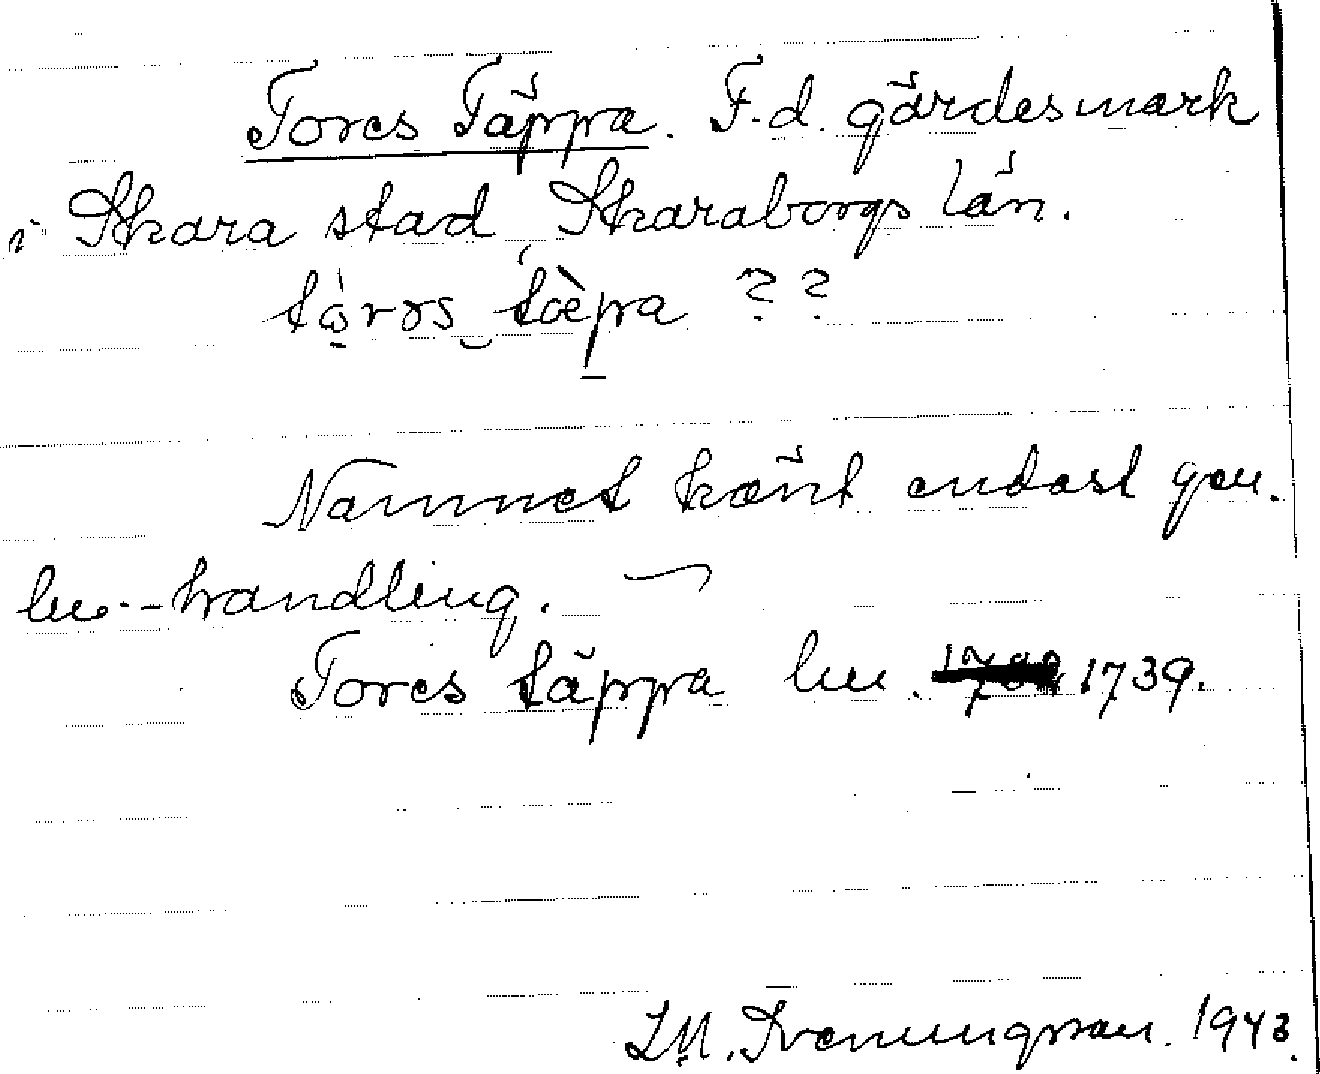 Tores Täppa. F.d. gärdesmark
i Skara stad, Skaraborgs län.
tå̀rəs tæ̀pa ??
Namnet känt endast gen.
lm-handling.
Tores täppa lm. 1739.
Svenungsson. 1943.